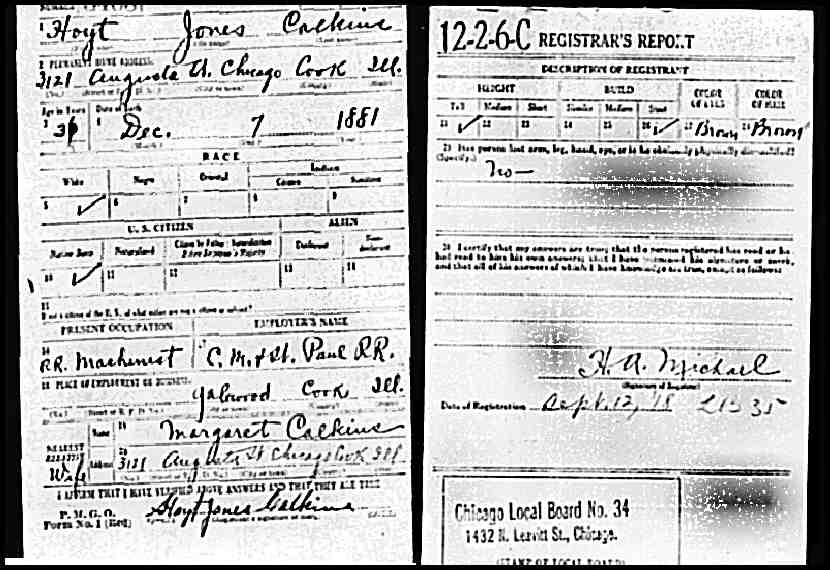 1 Hoyt Jones Calkins
2 PERMANENT HOME ADDRESS
3121 Augusta St. Chicago Cook Ill.
Age in Years Date of Birth
3 4 Dec. 7 1881
RACE
White Negro Oriental Indian
Citizen
5 ✓ 6 7 8 9
U. S. CITIZEN ALIEN
Native Born Naturalized Declarant
10 ✓ 11 12 13 14
15
PRESENT OCCUPATION EMPLOYER'S NAME
16 R.R. Machinist 17 C. M. & St. Paul R.R.
18 PLACE OF EMPLOYMENT OR BUSINESS
Cook Ill.
Name 19 Margaret Calkins
NEAREST RELATIVE
Wife Address 20 3121 Augusta St Chicago Cook Ill
I AFFIRM THAT I HAVE VERIFIED ABOVE ANSWERS AND THAT THEY ARE TRUE
P. M. G. O.
Form No. 1 (Red) Hoyt Jones Calkins
12-2-6-C REGISTRAR'S REPORT
DESCRIPTION OF REGISTRANT
HEIGHT BUILD COLOR OF EYES COLOR OF HAIR
Tall Medium Short Slender Medium Stout
21 ✓ 22 23 24 25 26 ✓ 27 Brown 28 Brown
29 Has person lost arm, leg, hand, eye, or is he obviously physically disqualified?
(Specify.) No—
30 I certify that my answers are true; that the person registered has read or has
had read to him his own answers; that I have witnessed his signature or mark,
and that all of his answers of which I have knowledge are true, except as follows:
H. A. Michael
(Signature of Registrar)
Date of Registration Sept. 12, 18
Chicago Local Board No. 34
1432 N. Leavitt St., Chicago.
(STAMP OF LOCAL BOARD)